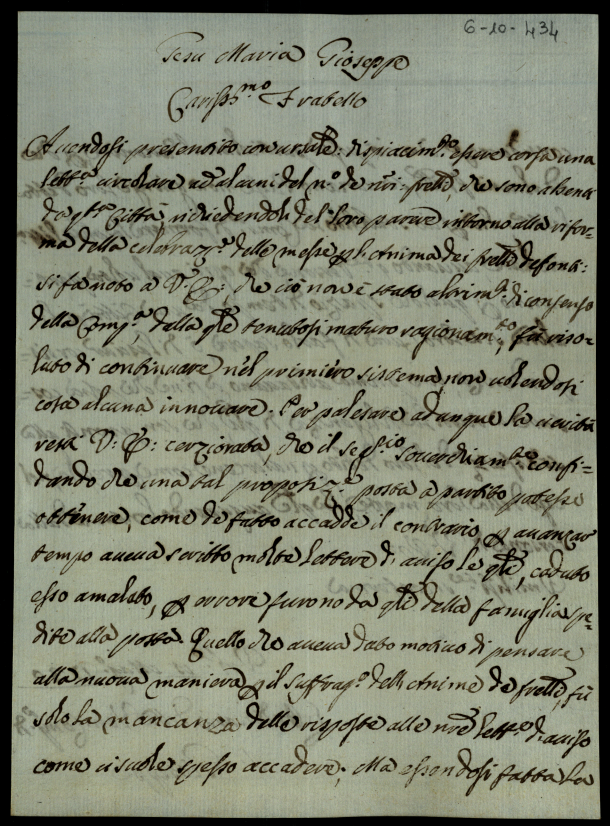 6-10-434
Jesu Maria Gioseppe
Cariss.mo Fratello
Avendosi presentito con dispiacim.to essere corsa una
lett.a circolare ad alcuni del n.o de n.ri frēlli, che sono absenti
da q.ta Città, richiedendoli del loro parere intorno alla rifor=
ma della celebraz.e delle messe p l'Anima dei frēlli defonti:
si fà noto a V: C: che ciò non è stato altrim.ti di consenso
della Comp.a, dalla q̄le tenutosi maturo ragionam.to, fù riso=
luto di continuare nel primiero sistema, non volendosi
cosa alcuna innovare. Per palesare adunque la verità
resti V: C: cerziorata, che il Seg.rio soverchiam.te confi=
dando che una tal proposiz.e posta a partito potesse
ottenere, come de fatto accadde il contrario, p avanzar
tempo aveva scritto molte lettere di aviso le q̄li, caduto
esso amalato, p errore furono da q̄lli della famiglia spe=
dite alla posta. Quello che aveva dato motivo di pensare
alla nuova maniera p il suffrag.o dell'Anime de frēlli, fù
solo la mancanza delle risposte alle n̄re lett.e di aviso
come ci suole spesso accadere; Ma essendosi fatta la